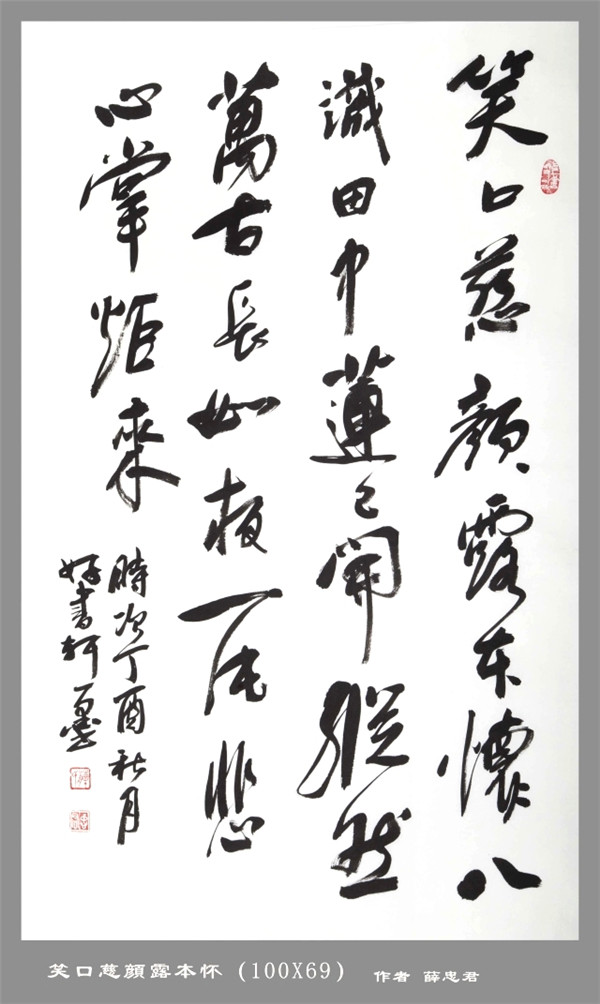 笑口慈顏露本懷八
識田中蓮已開縱然
萬古長如夜一片悲
心掌炬來
時次丁酉秋月
好書軒
笑口慈顔露本怀（100X69） 作者 薛忠君